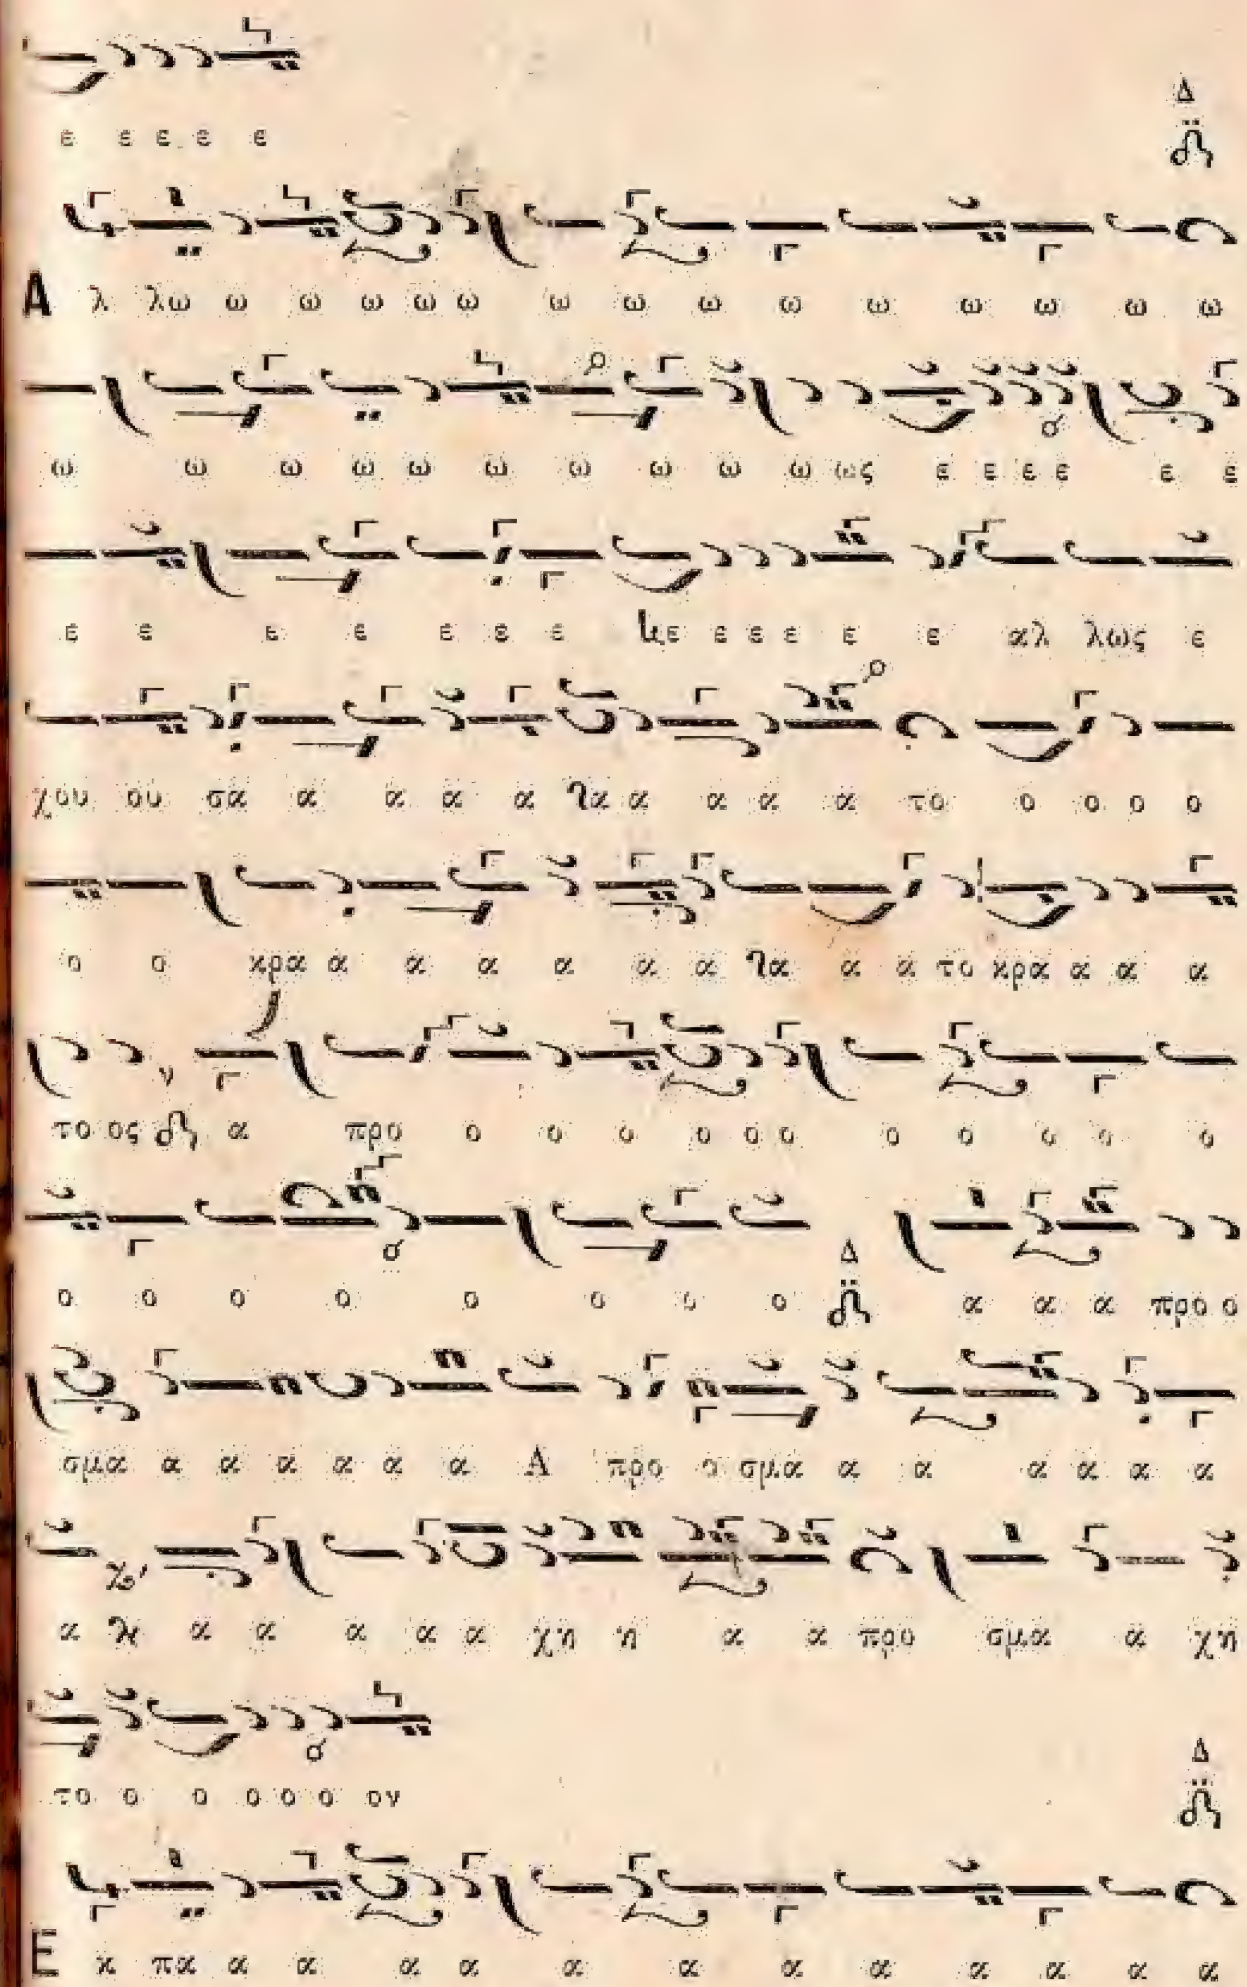 ε ε ε ε ε
Δ
Α λ λω ω ω ω ω ω ω ω ω ω ω ω ω ω ω
ω ω ω ω ω ω ω ω ω ω ως ε ε ε ε ε ε
ε ε ε ε ε ε ε ε ε ε ε ε αλ λως ε
χου ου σα α α α α α α α α α το ο ο ο ο
ο ο κρα α α α α α α α α α το κρα α α α
το ος α προ ο ο ο ο ο ο ο ο ο ο ο
ο ο ο ο ο ο ο ο Δ α α α προ ο
σμα α α α α α α Α προ ο σμα α α α α α α
α α α α α α χη η α α προ σμα α χη
το ο ο ο ο ο ον
Δ
Ε κ πα α α α α α α α α α α α